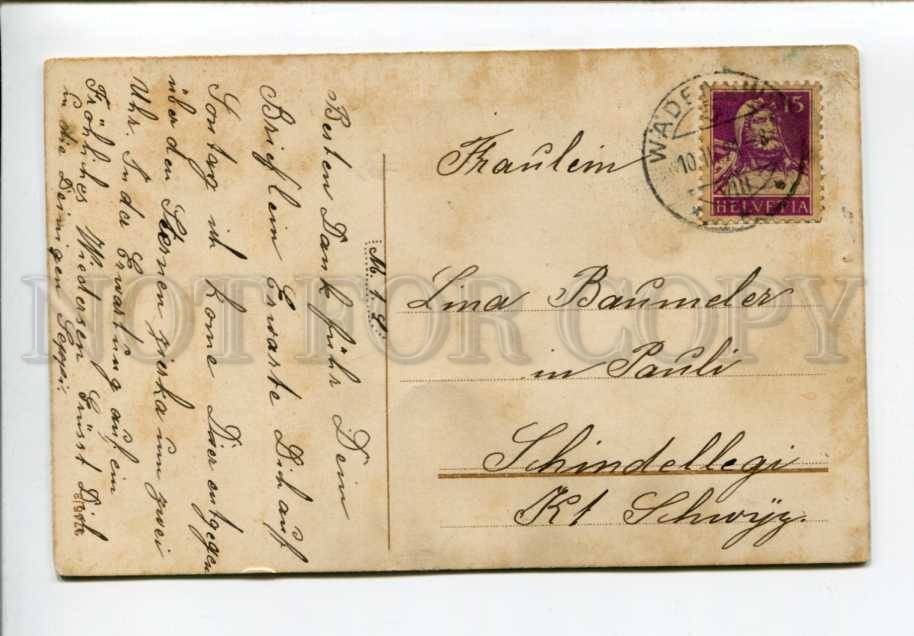 Besten Dank führ Dein
Brieflein Erwarte Dich auf
Sontag ich kome Dier entgegen
über den Sternen zirka um zwei
Uhr. In der Erwartung auf ein
Fröhliches Wiedersen Grüsst Dich
u die Deinigen Seppi.
M. 1. L.
Fraulein
Lina Baumeler
in Pauli
Schindellegi
Kt Schwÿz.
WÄDENSWIL
10.
VIII
15
HELVETIA
NOT FOR COPY